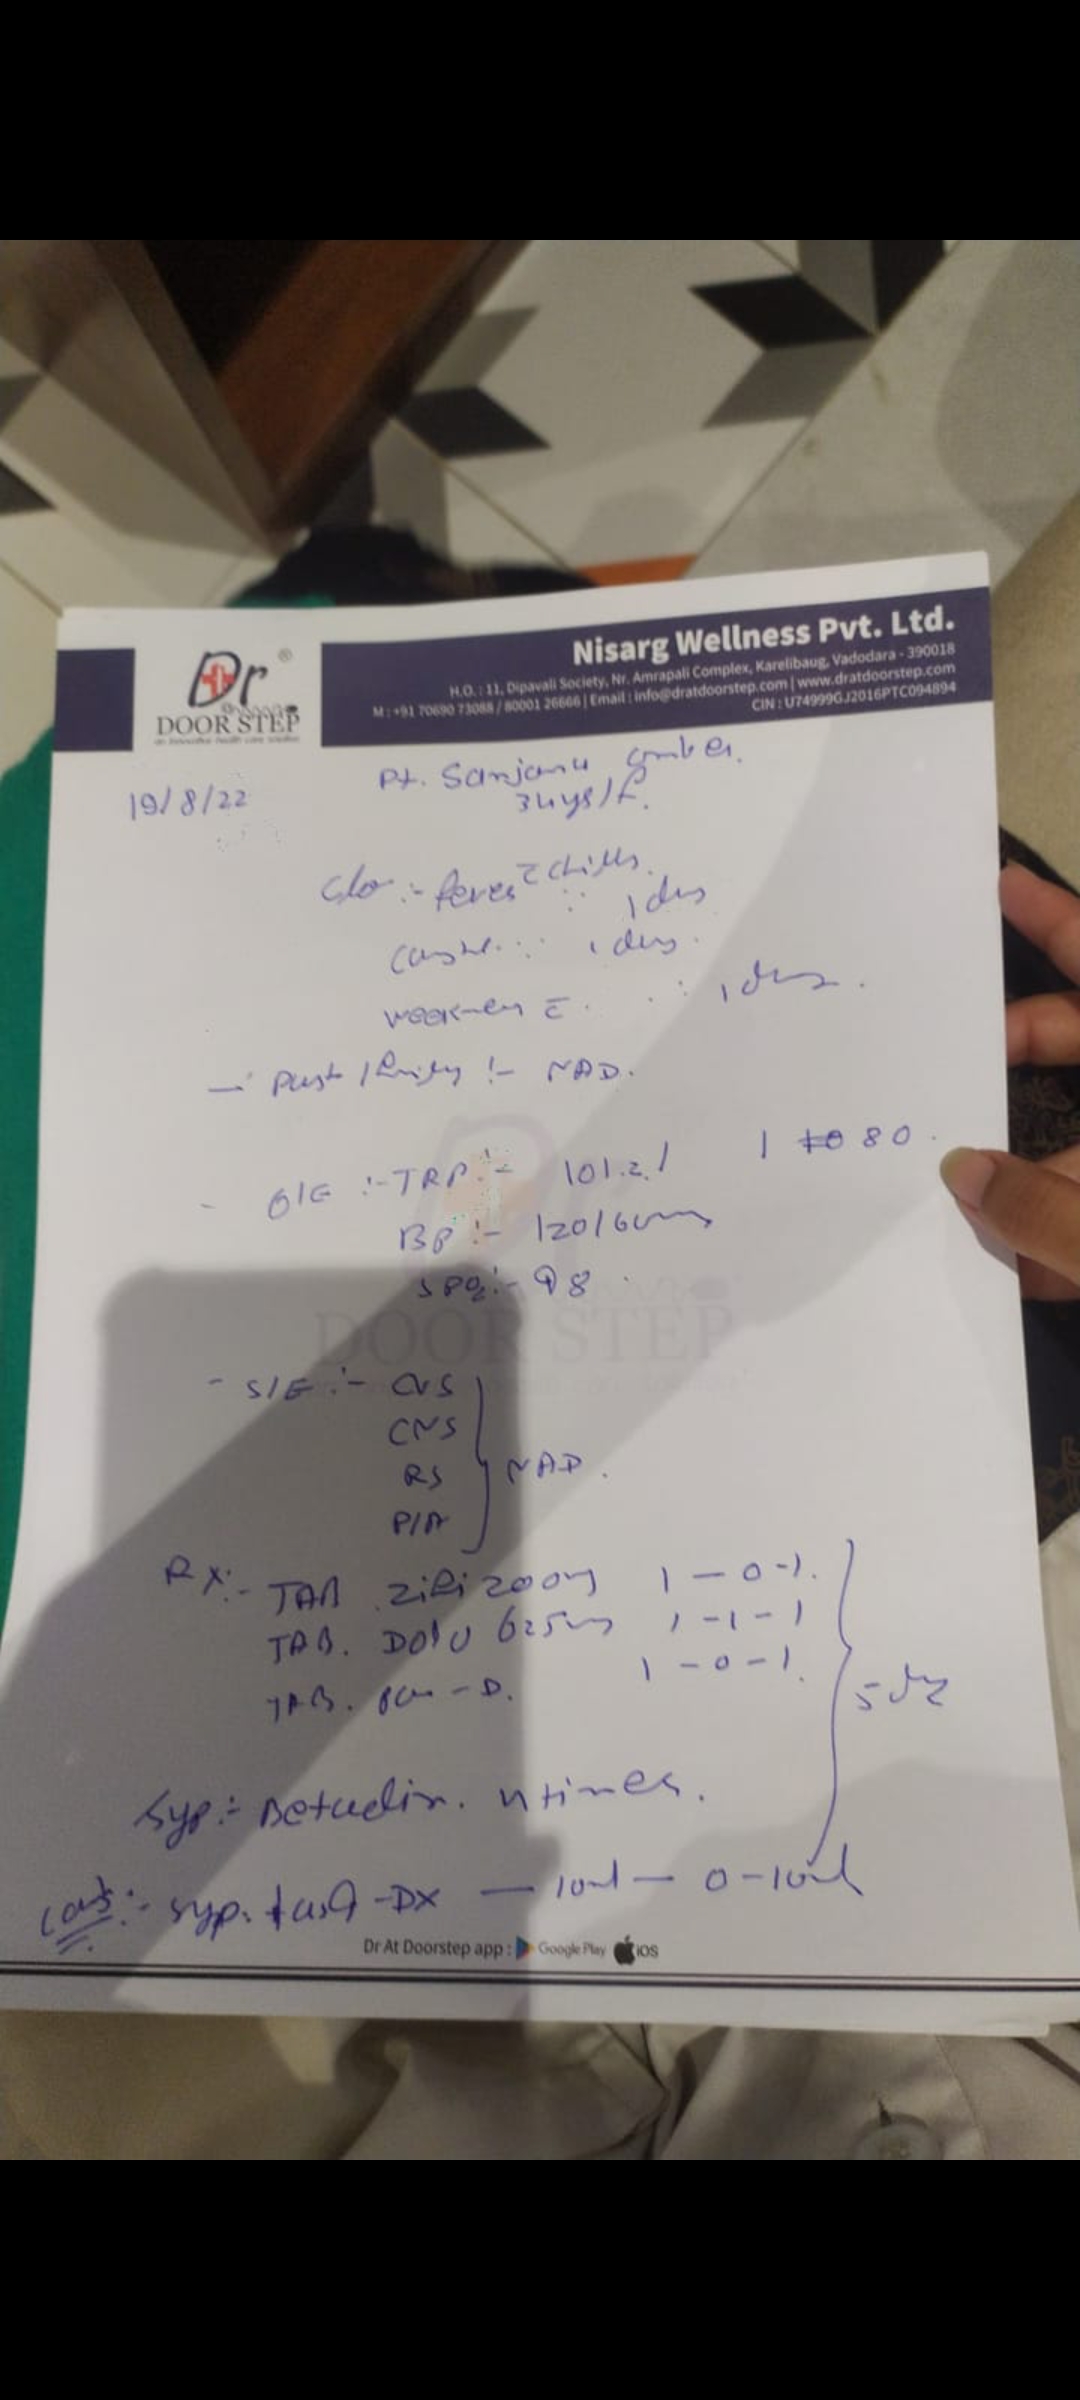 Dr ®
DOOR STEP
Nisarg Wellness Pvt. Ltd.
H.O. : 11, Dipavali Society, Nr. Amrapali Complex, Karelibaug, Vadodara - 390018
M : +91 70690 73088 / 80001 26666 | Email : info@dratdoorstep.com | www.dratdoorstep.com
CIN : U74999GJ2016PTC094894
Pt. Sanjana
19/8/22
34ys/f.
c/o :- fever c̄ chills.
1 day
1 day.
weakness 1 day.
- Past / family :- NAD.
- O/E :- TRP :- 101.2 / 80.
BP :- 120/60
SPO2 :- 98
DOOR STEP
- S/E :- CVS
CNS
RS NAD.
P/A
RX:- TAB. Zifi 200mg 1-0-1.
TAB. DOLO 625mg 1-1-1
TAB. -D. 1-0-1.
5
Syp :- Betadin. n times.
Syp. -DX - 10ml - 0-10ml
Dr At Doorstep app : Google Play iOS